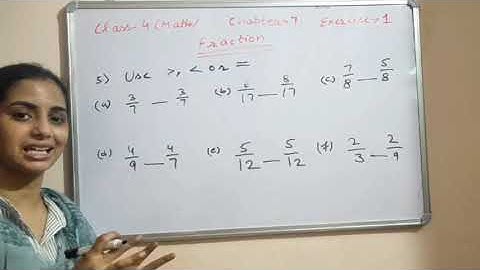 Class-4 (Maths) Chapter-7 Exercise-1
Fraction
5) Use >, < or =
(a) 3/7 — 3/7 (b) /17 — 8/17 (c) 7/8 — 5/8
(d) 4/9 — 4/7 (e) 5/12 — 5/12 (f) 2/3 — 2/9